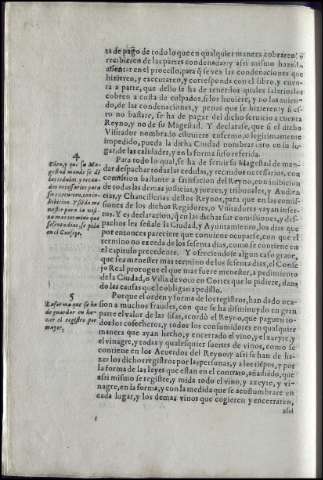 ta de pago de todo lo que en qualquier manera cobraren: o
recibieren de las partes condenadas: y assi mismo hazen
assentar en el processo, para q̃ se vea las condenaciones que
hizieren, y executaren, y corresponda con el libro, y cuen-
ta a parte, que dello se ha de tener: los quales salarios los
cobren a costa de culpados, si los huuiere, y no los auien-
do, de las condenaciones, y penas que se hizieren: y si es-
to no bastare, se ha de pagar del dicho seruicio a cuenta
Reyno, y no de su Magestad. Y declarase, que si el dicho
Visitador nombrado estuuiere enfermo, o legitimamente
impedido, pueda la dicha Ciudad nombrar otro en su lu-
gar, de las calidades, y en la forma suso referida.
Para todo lo qual, se ha de seruir su Magestad de man-
dar despachar todas las cedulas, y recaudos necessarios, con
comission bastante a satisfacion del Reyno, con inhibicion
de todas las demas justicias, y juezes, y tribunales, y Audien-
cias, y Chancillerias destos Reynos, para que en las comis-
siones de los dichos Regidores, y Visitadores vayan inser-
tos. Y es declaracion, q̃ en las dichas sus comissiones, y des-
pachos les señale la Ciudad, y Ayuntamiento, los dias que
por entonces pareciere que conuiene ocuparse, con que el
termino no exceda de los sesenta dias, como se contiene en
el capitulo precedente. Y ofreciendose algun caso graue,
que sea menester mas termino de los sesenta dias, el Conse-
jo Real prorogue el que mas fuere menester, a pedimiento
de la Ciudad, o Villa de voto en Cortes que lo pidiere, dan-
do las causas que le obligan a pedillo.
Porque el orden y forma de los registros, han dado oca-
sion a muchos fraudes, con que se ha disminuydo en gran
parte el valor de las sisas, acordò el Reyno, que paguen to-
dos los cosecheros, y todos los consumidores en qualquier
manera que ayan hecho, y encerrado el vino, y el azeyte, y
el vinagre, y todas y qualesquier suertes de vinos, como se
contiene en los Acuerdos del Reyno: y assi se han de ha-
zer los dichos registros por las personas, y a los tiẽpos, y por
la forma de las leyes que estan en el contrato, añadido, que
assi mismo se registre, y mida todo el vino, y azeyte, y vi-
nagre, en la forma, y con la medida que se acostumbrare en
cada lugar, y los demas vinos que cogieren y encerraren,
assi
4
Idem, y que su Ma-
gestad mande se dẽ
las cedulas, y recau-
dos necessarios para
su execucion, con in-
hibicion
5
La forma que se ha
de guardar en ha-
zer el registro por
mayor.